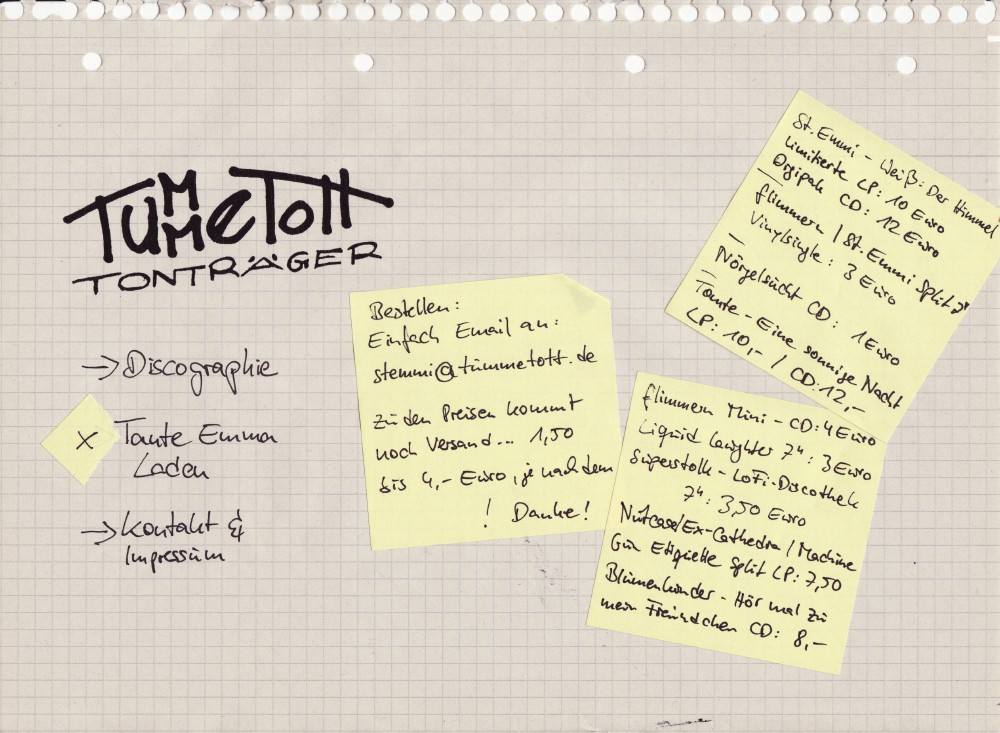 TUMMETOTT
TONTRÄGER
→ Discographie
x Tante Emma
Laden
→ Kontakt &
Impressum
Bestellen:
Einfach Email an:
stemmi@tümmetott.de
zu den Preisen kommt
noch Versand... 1,50
bis 4,- Euro, je nachdem
! Danke!
St. Emmi - Weiß: Der Himmel
Limitierte LP: 10 Euro
Digipak CD: 12 Euro
flimmern / St. Emmi Split 7"
Vinylsingle: 3 Euro
Nörgelsücht CD: 1 Euro
Tante - Eine sonnige Nacht
LP: 10,- / CD: 12,-
flimmern Mini - CD: 4 Euro
Liquid laughter 7": 3 Euro
Superstolk - LoFi-Discothek
7": 3,50 Euro
Nutcase/Ex-Cathedra / Machine
Gun Etiquette Split LP: 7,50
Blumenkinder - Hör mal zu
mein Freundchen CD: 8,-